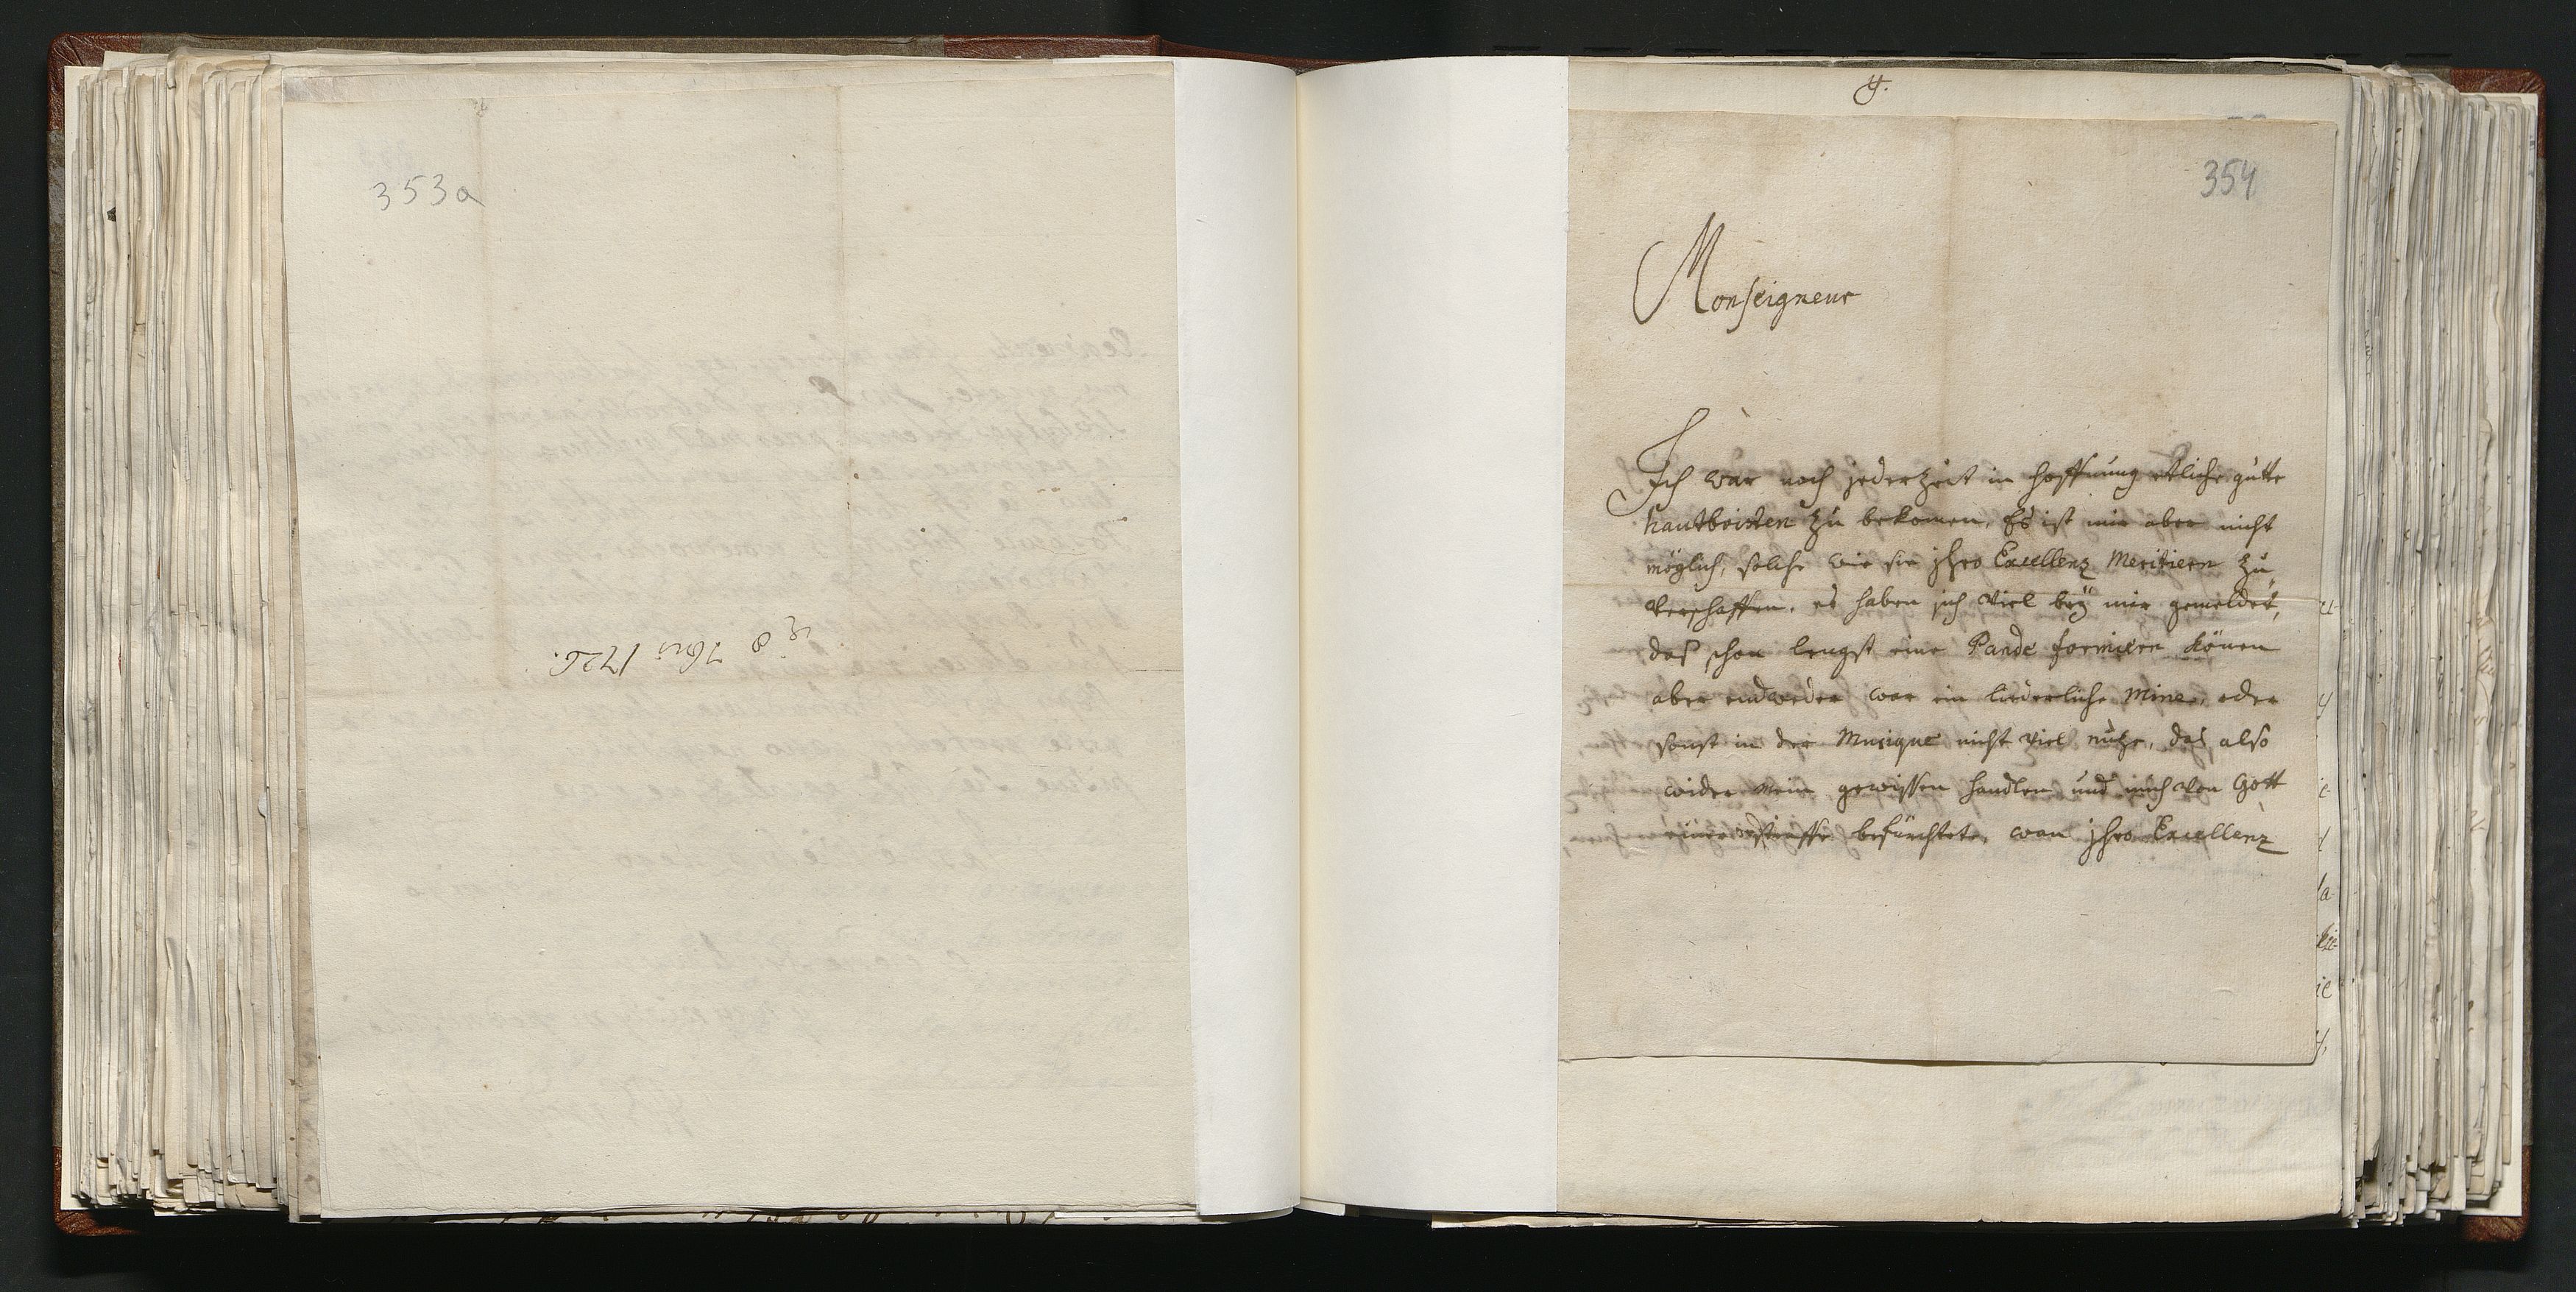 353a
8 7bris 1726.
y.
354
Monseigneur
Ich war noch jederzeit in hoffnung etliche gutte
hautboisten zu bekomen, Es ist mir aber nicht
möglich, solche wie sie jhro Excellenz Meritiern zu
verschaffen, es haben sich viel beÿ mir gemeldet,
daß schon lengst eine Bande formiern könen
aber entweder war ein liederliche Mine, oder
sonst in der Musique nicht viel nutze, daß also
wider mein gewissen handlen und mich von Gott
einer straffe befürchtete, wan jhro Excellenz